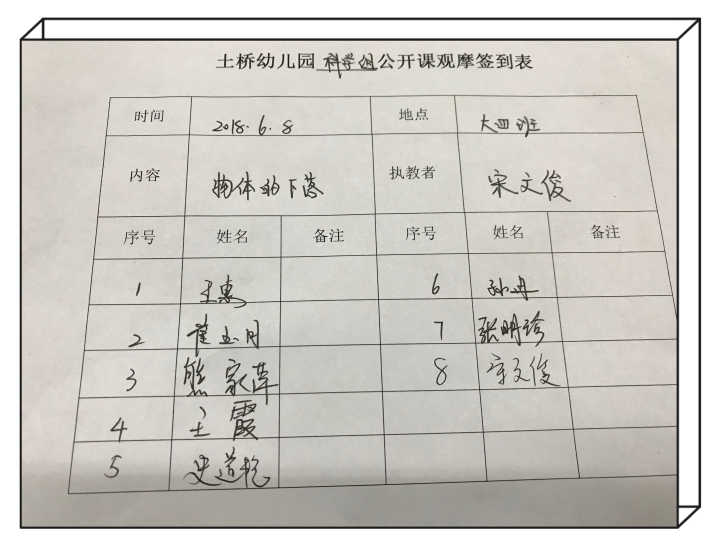 土桥幼儿园科学组公开课观摩签到表
时间 2018.6.8 地点 大四班
内容 物体的下落 执教者 宋文俊
序号 姓名 备注 序号 姓名 备注
1 王惠 6 孙丹
2 7 张明珍
3 熊家萍 8 宋文俊
4 王霞
5